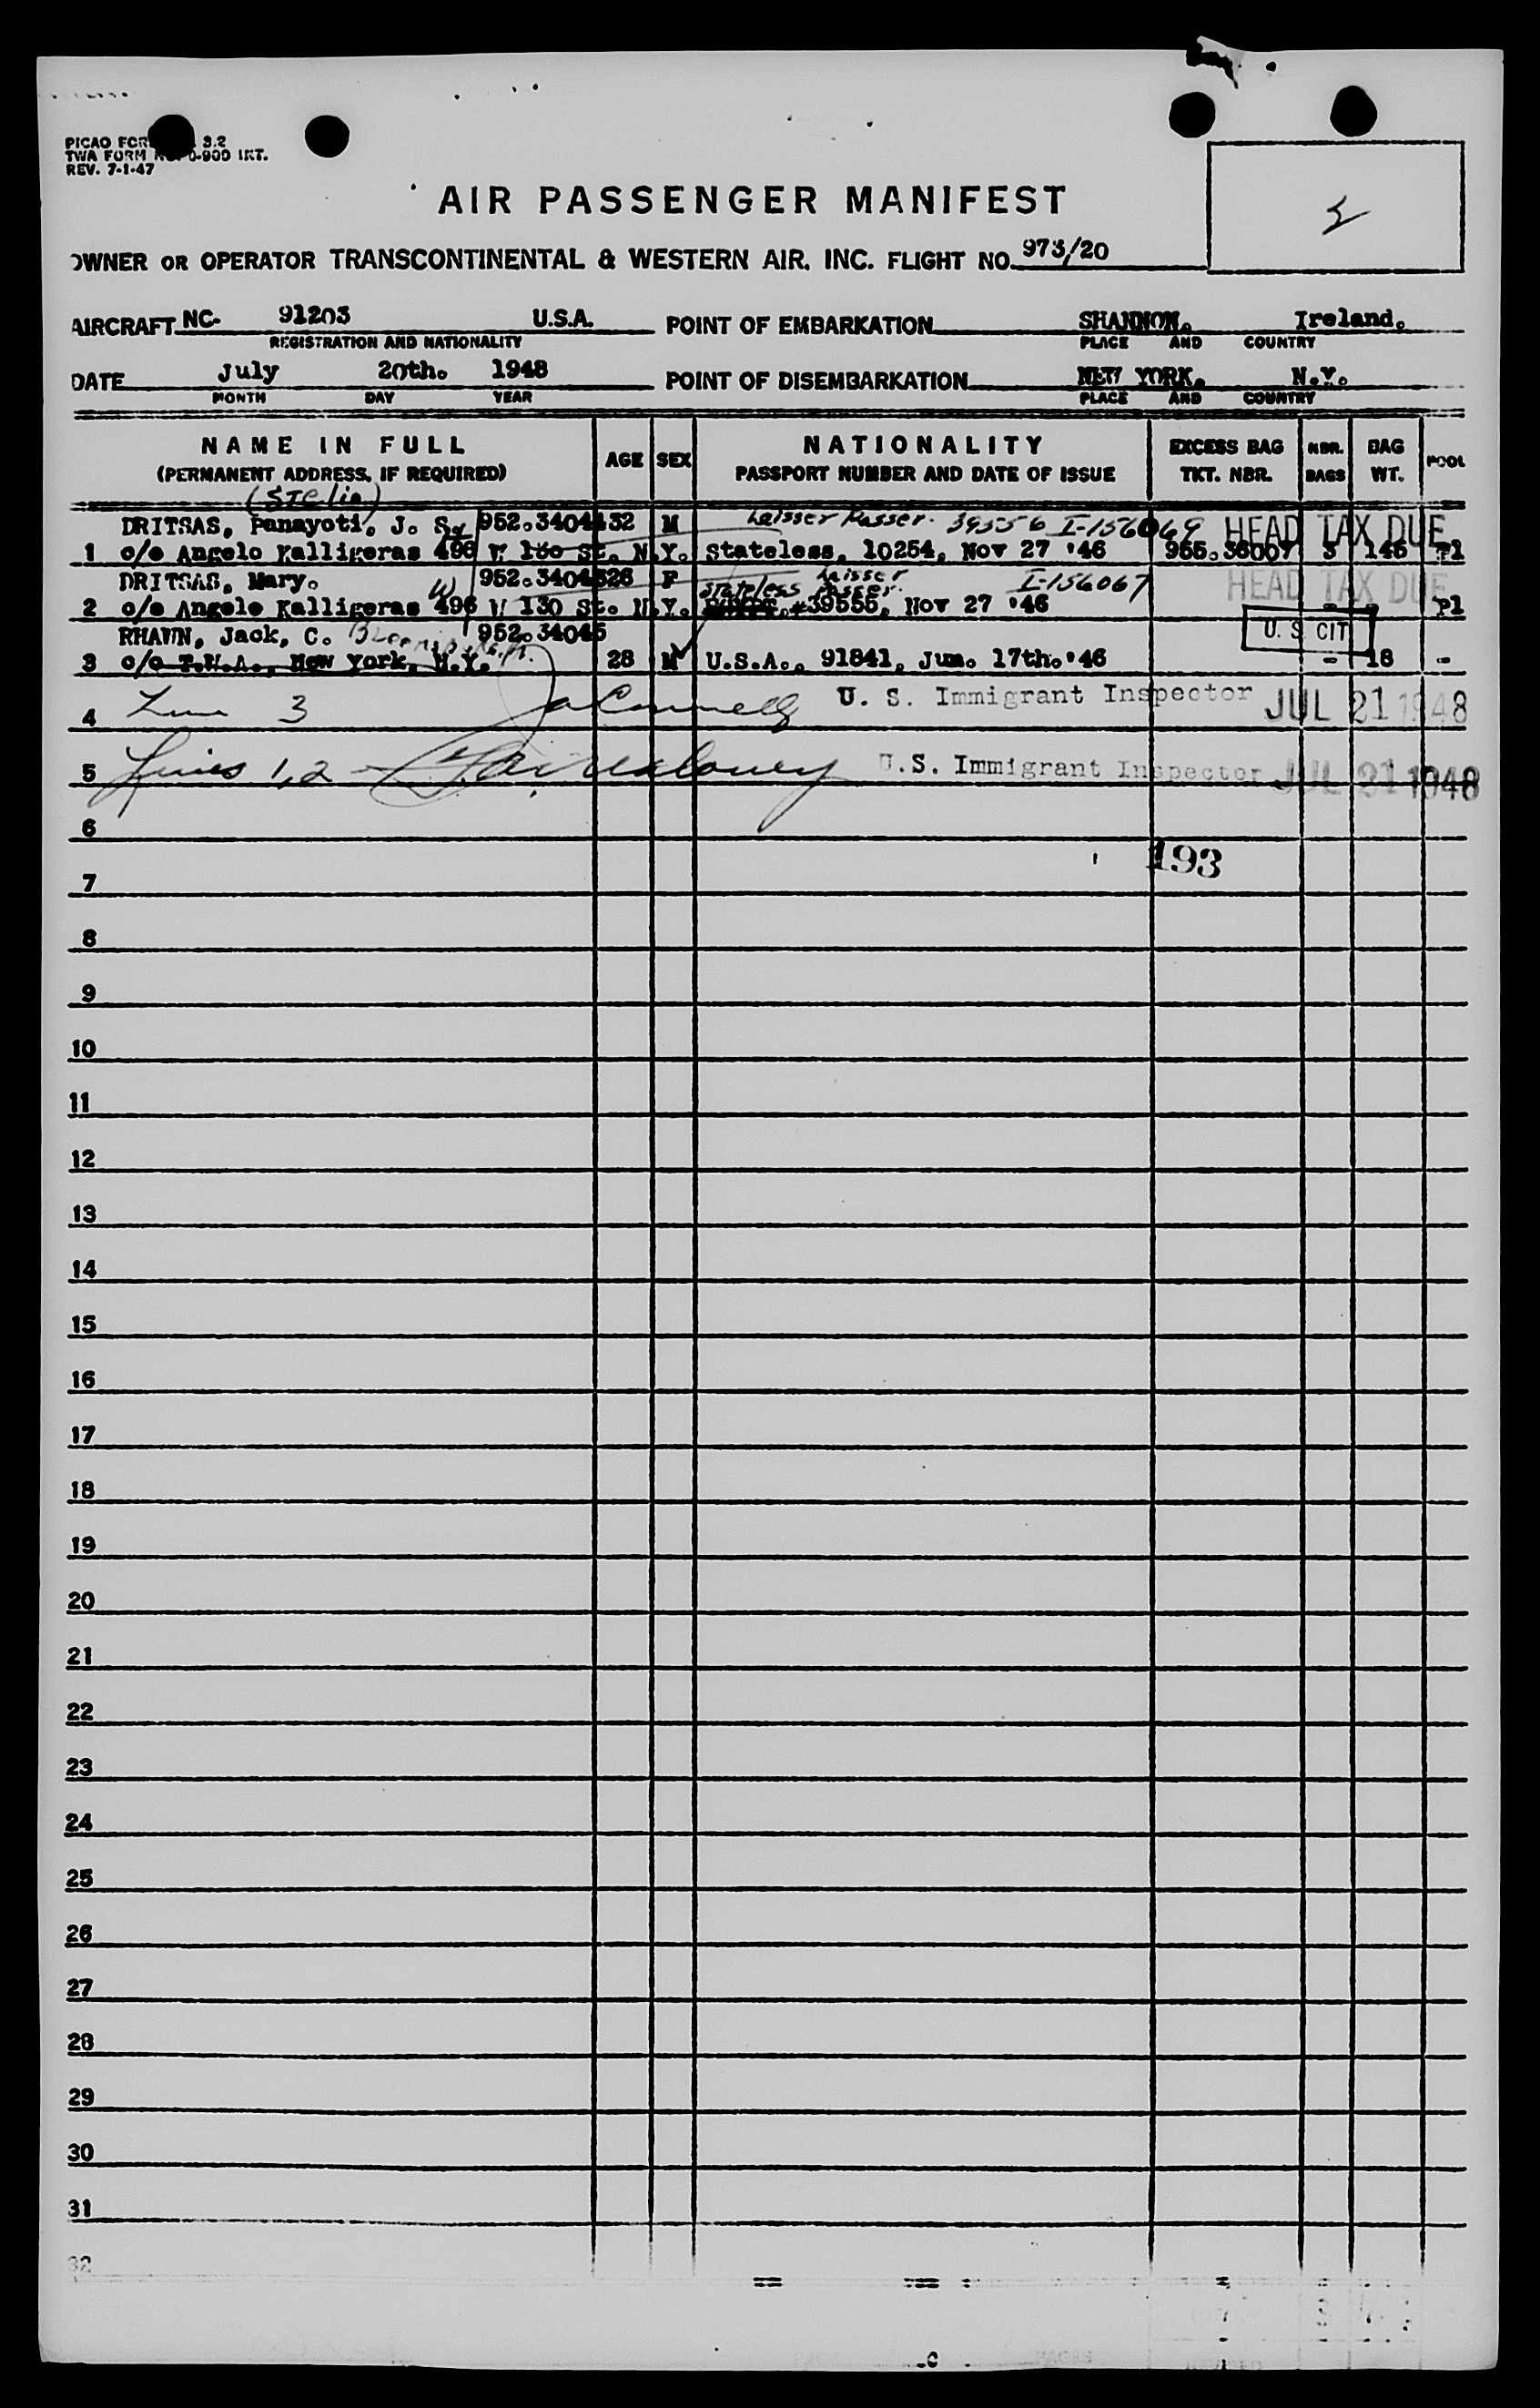 PICAO FOR 3.2
TWA FORM NO. 0-900 INT.
REV. 7-1-47
AIR PASSENGER MANIFEST
OWNER OR OPERATOR TRANSCONTINENTAL & WESTERN AIR, INC. FLIGHT NO. 973/20
AIRCRAFT NC- 91203 U.S.A. POINT OF EMBARKATION SHANNON. Ireland.
REGISTRATION AND NATIONALITY PLACE AND COUNTRY
DATE July 20th. 1948 POINT OF DISEMBARKATION NEW YORK. N.Y.
MONTH DAY YEAR PLACE AND COUNTRY
NAME IN FULL AGE SEX NATIONALITY EXCESS BAG NBR. BAG POOL
(PERMANENT ADDRESS, IF REQUIRED) PASSPORT NUMBER AND DATE OF ISSUE TKT. NBR. BAGS WT.
(Stelio)
DRITSAS, Panayoti, J. S. 952.34044 32 M Laisser Passer. 39556 I-156069 HEAD TAX DUE
1 c/o Angelo Kalligeras 496 W St. N.Y. Stateless, 10254, Nov 27 '46 955.36007 3 145 P1
DRITSAS, Mary. 952.34045 26 F Stateless Laisser Passer. I-156067 HEAD TAX DUE
2 c/o Angelo Kalligeras 496 W 130 St. N.Y. #39555, Nov 27 '46 - - P1
RHAWN, Jack, C. 952.34045 U. S. CIT
3 c/o T.W.A., New York, N.Y. 28 M U.S.A., 91841, Jun. 17th. '46 - 18 -
4 Line 3 U. S. Immigrant Inspector JUL 21 1948
5 Lines 1,2 - U.S. Immigrant Inspector JUL 21 1948
6
193
7
8
9
10
11
12
13
14
15
16
17
18
19
20
21
22
23
24
25
26
27
28
29
30
31
32